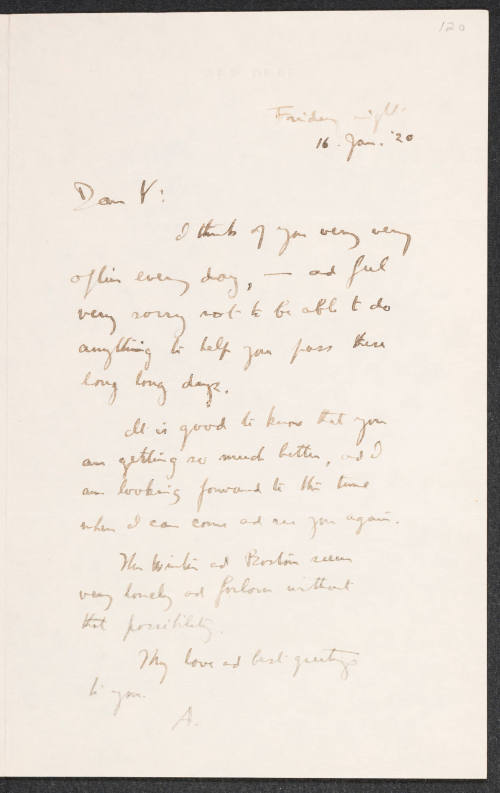 120
Friday night
16. Jan. '20
Dear V:
I think of you very very
often every day, — and feel
very sorry not to be able to do
anything to help you pass these
long long days.
It is good to know that you
are getting so much better, and I
am looking forward to the time
when I can come and see you again.
The Winter and Boston seem
very lonely and forlorn without
that possibility.
My love and best greetings
to you.
A.